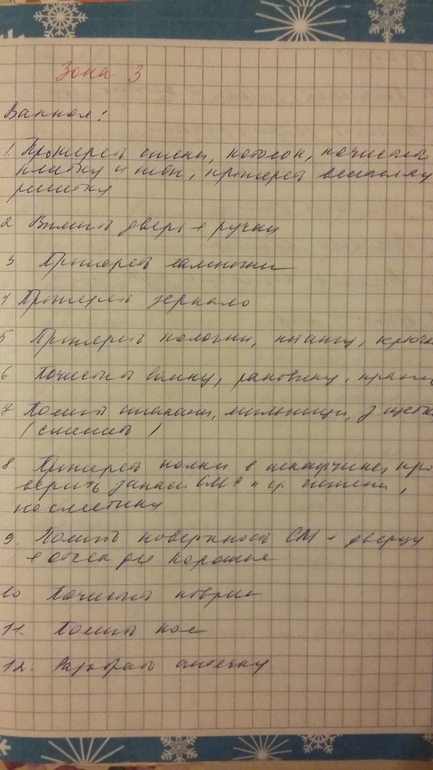 Зона 3
Ванная:
1. Протереть стены, потолок, почистить
плитку и швы, протереть вентиляц
решетку
2 Вымыть дверь + ручки
3 Протереть
4 Протереть зеркало
5 Протереть полочки, штангу, крючк
6 Почистить ванну, раковину, краны
7 Помыть стаканы, мыльницы, з щетк
(сменить)
8. Протереть полки в пенальчике, про
верить запасы и ср. гигиены,
косметику
9. Помыть поверхность СМ + дверцу
+ отсек для порошка
10 Почистить коврик
11. Помыть пол
12. Разобрать аптечку